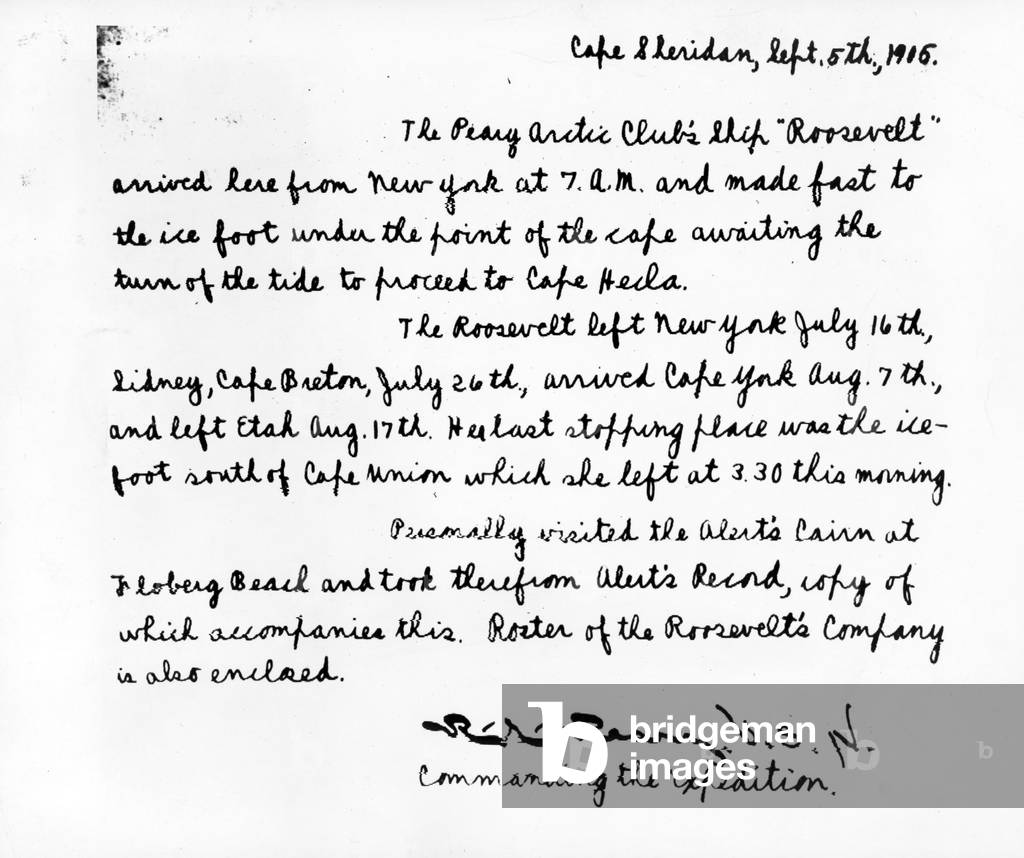 Cape Sheridan, Sept. 5th., 1905.
The Peary Arctic Club's Ship "Roosevelt"
arrived here from New York at 7. A.M. and made fast to
the ice foot under the point of the cape awaiting the
turn of the tide to proceed to Cape Hecla.
The Roosevelt left New York July 16th.,
Sidney, Cape Breton, July 26th., arrived Cape York Aug. 7th.,
and left Etah Aug. 17th. Her last stopping place was the ice-
foot south of Cape Union which she left at 3.30 this morning.
Personally visited the Alert's Cairn at
Floberg Beach and took therefrom Alert's Record, copy of
which accompanies this. Roster of the Roosevelt's Company
is also enclosed.
R.E. Peary, U.S.N.
Commanding the Expedition.
bridgeman
images